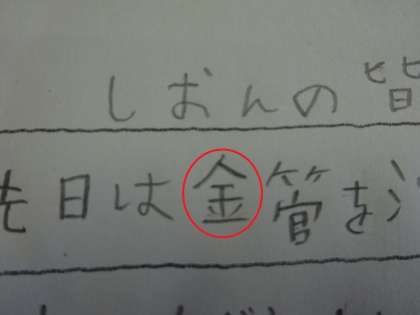 しおんの皆
先日は金管を